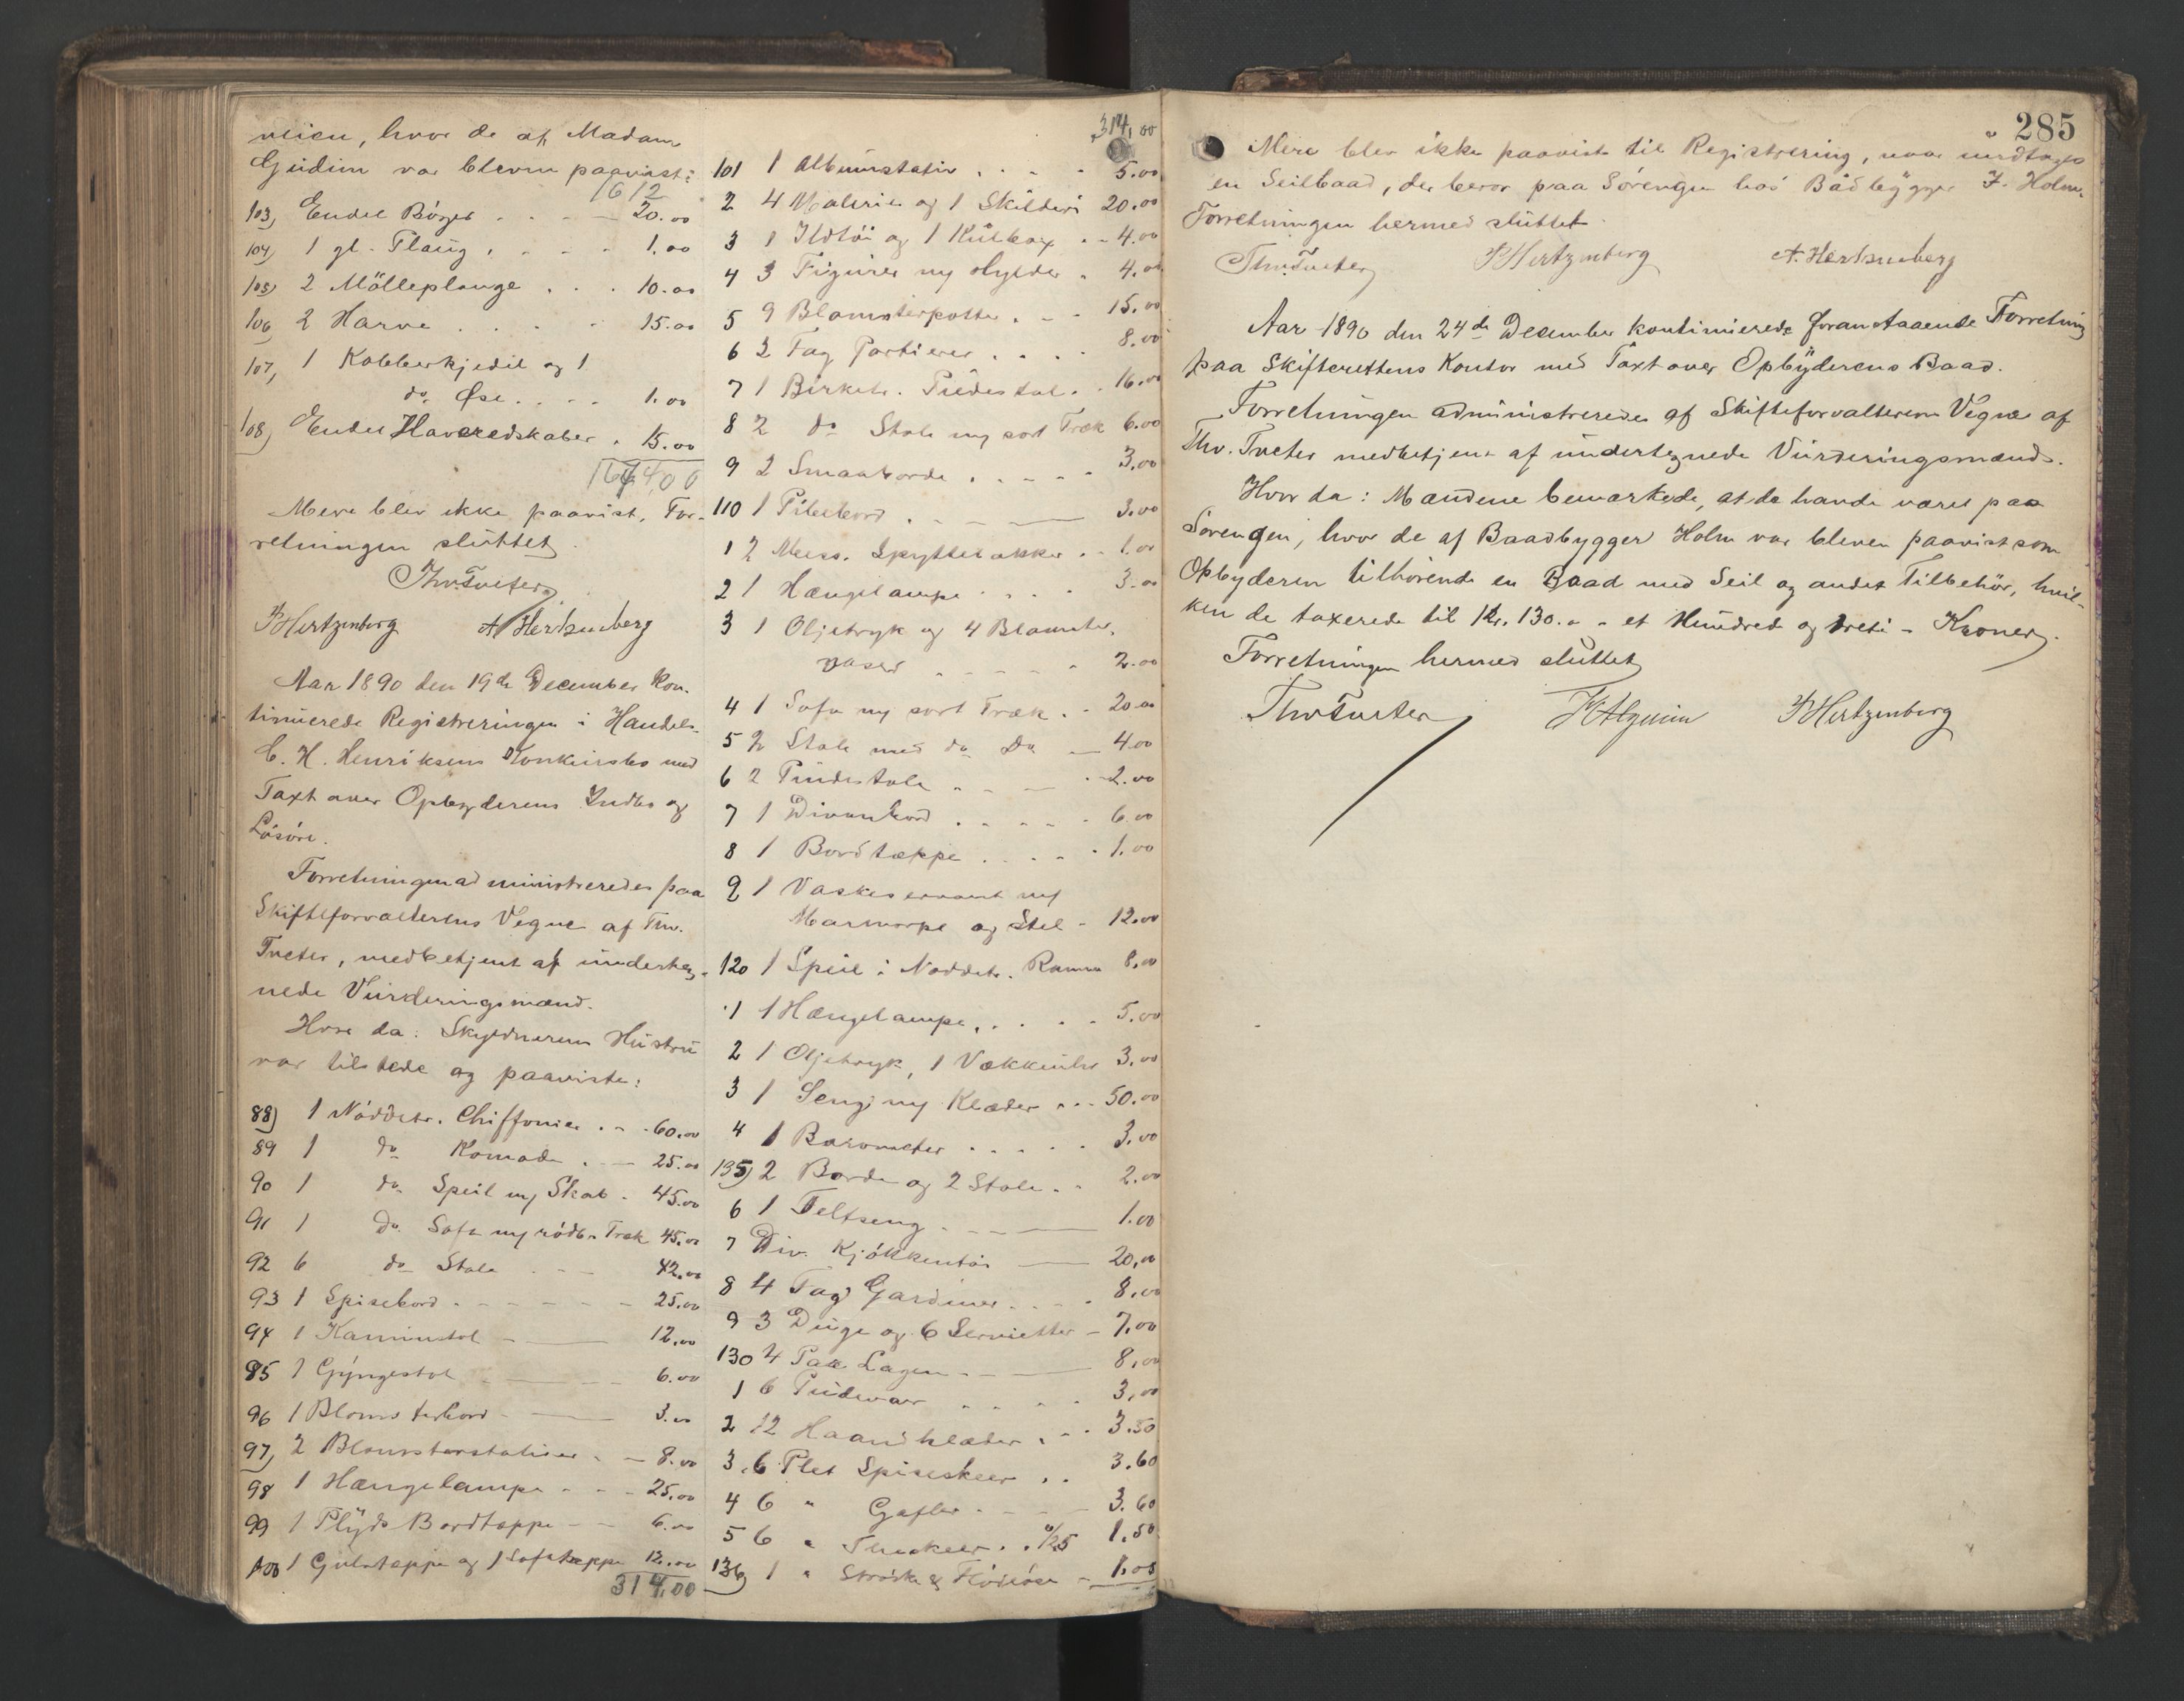 veien, hvor de af Madam
Gudim var bleven paavist:
1612
103) Endel Bøger 20.00
104) 1 gl. Plaug 1.00
105) 2 Mölleplouge 10.00
106 2 Harve 15.00
107, 1 Kobberkjedel og 1
do Øse 1.00
108) Endel Haveredskaber 15.00
1674,00
Mere blev ikke paavist, For-
retningen sluttet.
Thv. Tveter
P Hertzenberg A. Hertzenberg
Aar 1890 den 19de December kon-
tinuerede Registreringen i Handels-
C. H. Henriksens Konkursbo med
Taxt over Opbyderens Indbo og
Løsøre.
Forretningen administreredes paa
Skifteforvalterens Vegne af Thv.
Tveter, medbetjent af underteg-
nede Vurderingsmænd.
Hvor da: Skyldnerens Hustru
var tilstede og paaviste:
88) 1 Nöddetr. Chiffonier 60.00
89 1 do Komode 25.00
90 1 do Speil m/ Skab 45.00
91 1 do Sofa m/ rödbr. Træk 45.00
92 6 do Stole 42.00
93 1 Spisebord 25.00
94 1 Kaminstol 12.00
95 1 Gyngestol 6.00
96 1 Blomsterbord 3.00
97, 2 Blomsterstativer 8.00
98 1 Hængelampe 25.00
99 1 Plyds Bordtæppe 6.00
100 1 Gulvtæppe og 1 Sofatæppe 12.00
314,00
314,00
101 1 Albumstativ 5.00
2 4 Malerier og 1 Skilderi 20.00
3 1 Ildtöi og 1 Kulbox 4.00
4 3 Figurer m/ Hylder 4.00
5 9 Blomsterpotter 15.00
6 2 Fag Portierer 8.00
7 1 Birketr. Pidestal 16.00
8 2 do Stole m/ sort Træk 6.00
9 2 Smaaborde 3.00
110 1 Pibebord 3.00
1 2 Mess. Spyttebakker 1.00
2 1 Hængelampe 3.00
3 1 Oljetryk og 4 Blomster-
vaser 2.00
4 1 Sofa m/ sort Træk 20.00
5 2 Stole med do Do 4.00
6 2 Pindestole 2.00
7 1 Divanbord 6.00
8 1 Bordtæppe 1.00
9 1 Vaskeservant m/
Marmorpl og Stel 12.00
120 1 Speil i Nöddetr. Ramme 8.00
1 1 Hængelampe 5.00
2 1 Oljetryk, 1 Vækkeuhr 3.00
3 1 Seng m/ Klæder 50.00
4 1 Barometer 3.00
125) 2 Borde og 2 Stole 2.00
6 1 Feltseng 1.00
7 Div. Kjøkkentöi 20,00
8 4 Fag Gardiner 8.00
9 3 Duge og 6 Servietter 7.00
130 4 Par Lagen 8.00
1 6 Pudevar 3,00
2 12 Haandklæder 3.50
3 6 Plet Spiseskeer 3.60
4 6 " Gafler 3.60
5 6 " Theskeer a/25 1.50
136) 1 " Strøske & Flödeöse 1.00
285
Mere blev ikke paavist til Registrering, naar undtages
en Seilbaad, der beror paa Sörengen hos Bådbygger J. Holm.
Forretningen hermed sluttet.
Thv. Tveter P Hertzenberg A. Hertzenberg
Aar 1890 den 24de December kontinuerede foranstaaende Forretning
paa Skifterettens Kontor med Taxt over Opbyderens Baad.
Forretningen administreredes af Skifteforvalterens Vegne af
Thv. Tveter medbetjent af undertegnede Vurderingsmænd.
Hvor da: Mændene bemærkede, at de havde været paa
Sörengen, hvor de af Baadbygger Holm var bleven paavist som
Opbyderen tilhörende en Baad med Seil og andet Tilbehör, hvil-
ken de taxerede til Kr. 130.- et Hundred og treti - Kroner.
Forretningen hermed sluttet
Thv Tveter P Hertzenberg